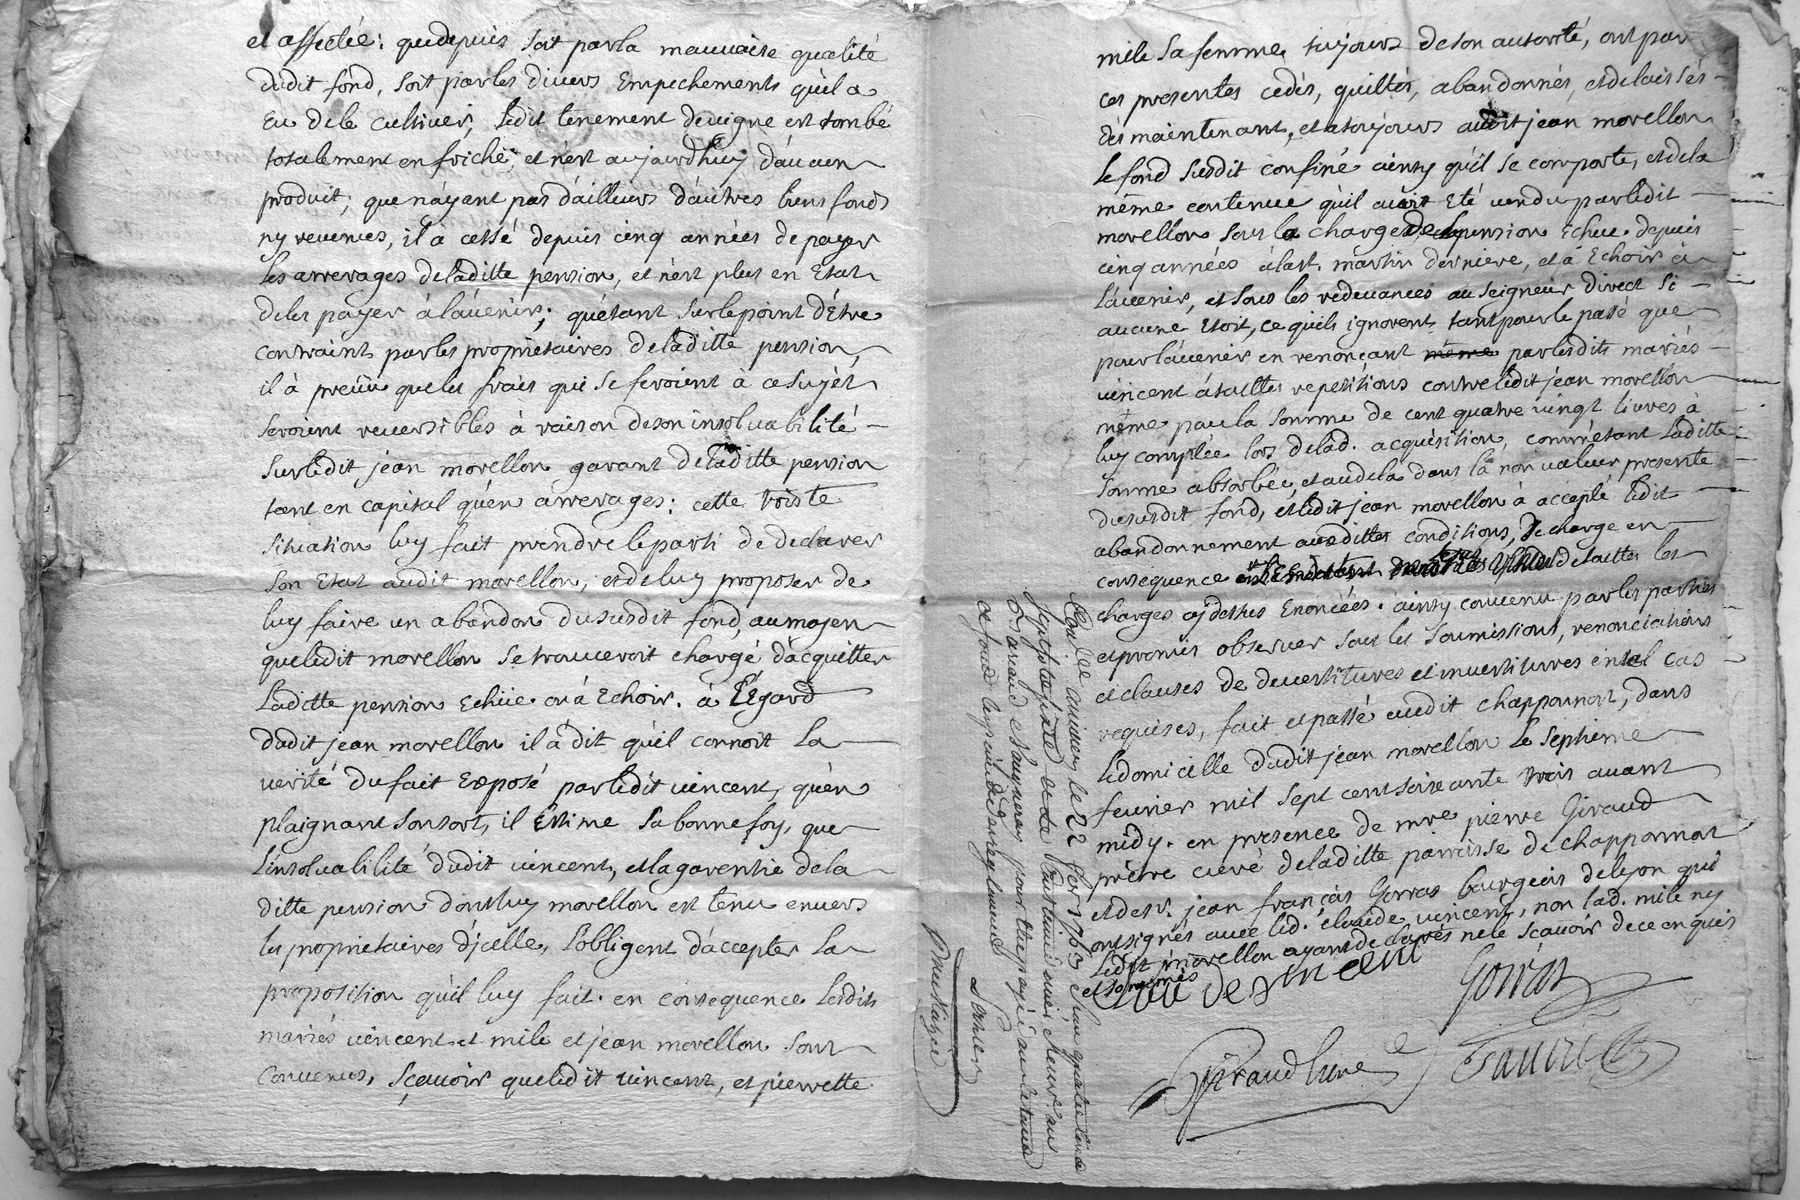 et affectée: que depuis soit par la mauvaise qualité
dudit fond, soit par les divers Empechements qu'il a
Eu de le cultiver, ledit tenement de vigne est tombé
totalement en friche, et n'est aujourd'huy d'aucun
produit; que n'ayant pas d'ailleurs d'autres biens fonds
ny revenues, il à cessé depuis cinq années de payer
les arrerages de laditte pension, et n'est plus en Etat
de les payer à l'avenir; qu'étant sur le point d'Etre
contraint par les proprietaires de laditte pension,
il à preüü que les frais qui se feroient à ce sujet
seroient reversibles à raison de son insolvabilité
sur ledit jean morellon garant de laditte pension
tant en capital qu'en arrerages: cette triste
situation luy fait prendre le parti de declarer
son Etat audit morellon, et de luy proposer de
luy faire un abandon du susdit fond, au moyen
que ledit morellon se trouveroit chargé d'acquitter
laditte pension echüe ou à Echoir. à l'Egard
dudit jean morellon il à dit qu'il connoit la
verité du fait Exposé par ledit vincent, qu'en
plaignant son sort, il Estime sa bonne foy, que
l'insolvabilité dudit vincent, et la garentie de la
ditte pension dont luy morellon est tenu envers
les proprietaires d'jcelle, l'obligent d'accepter la
proposition qu'il luy fait. en consequence lesdits
mariés vincent et mile et jean morellon sont
convenus, sçavoir que ledit vincent, et pierrette
mile sa femme toujours de son autorité, ont par
ces presentes cedés, quittés, abandonnés, et delaissés
dès maintenant, et a toujours audit jean morellon
le fond susdit confiné ainsy qu'il se comporte, et de la
même contenue qu'il avoit Eté vendu par ledit
morellon sous la charge de la pension Echue depuis
cinq années à la st. martin derniere, et à Echoir à
l'avenir, et sous les redevances au seigneur direct si
aucune Etoit, ce qu'ils ignorent tant pour le passé que
pour l'avenir en renonçant même par lesdits mariés
vincent à touttes repetitions contre ledit jean morellon
même pour la somme de cent quatre vingt livres à
luy comptée lors de lad. acquisition, comm'étant laditte
somme absorbée, et au dela dans la non valeur presente
du susdit fond, et ledit jean morellon à accepté ledit
abandonnement auxdittes conditions, se charge en
consequence de touttes les
charges cy dessus Enoncées. ainsy convenu par les parties
et promis observer sous les soumissions, renonciations
et clauses de devestitures et investitures en tel cas
requises, fait et passé audit chapponnost, dans
le domicille dudit jean morellon le septieme
fevrier mil sept cent soixante trois avant
midy. en presence de mre pierre Giraud
prêtre curé de laditte parroisse de chapponnost
et de sr. jean françois Gorras bourgeois de lyon qui
ont signés avec led. claude vincent, non lad. mile ny
ledit morellon ayant declarés ne le sçavoir de ce enquis
et sommés
Claude vincent
Gorras
Giraud Curé
Con[tro]lé le 22 fer 1763